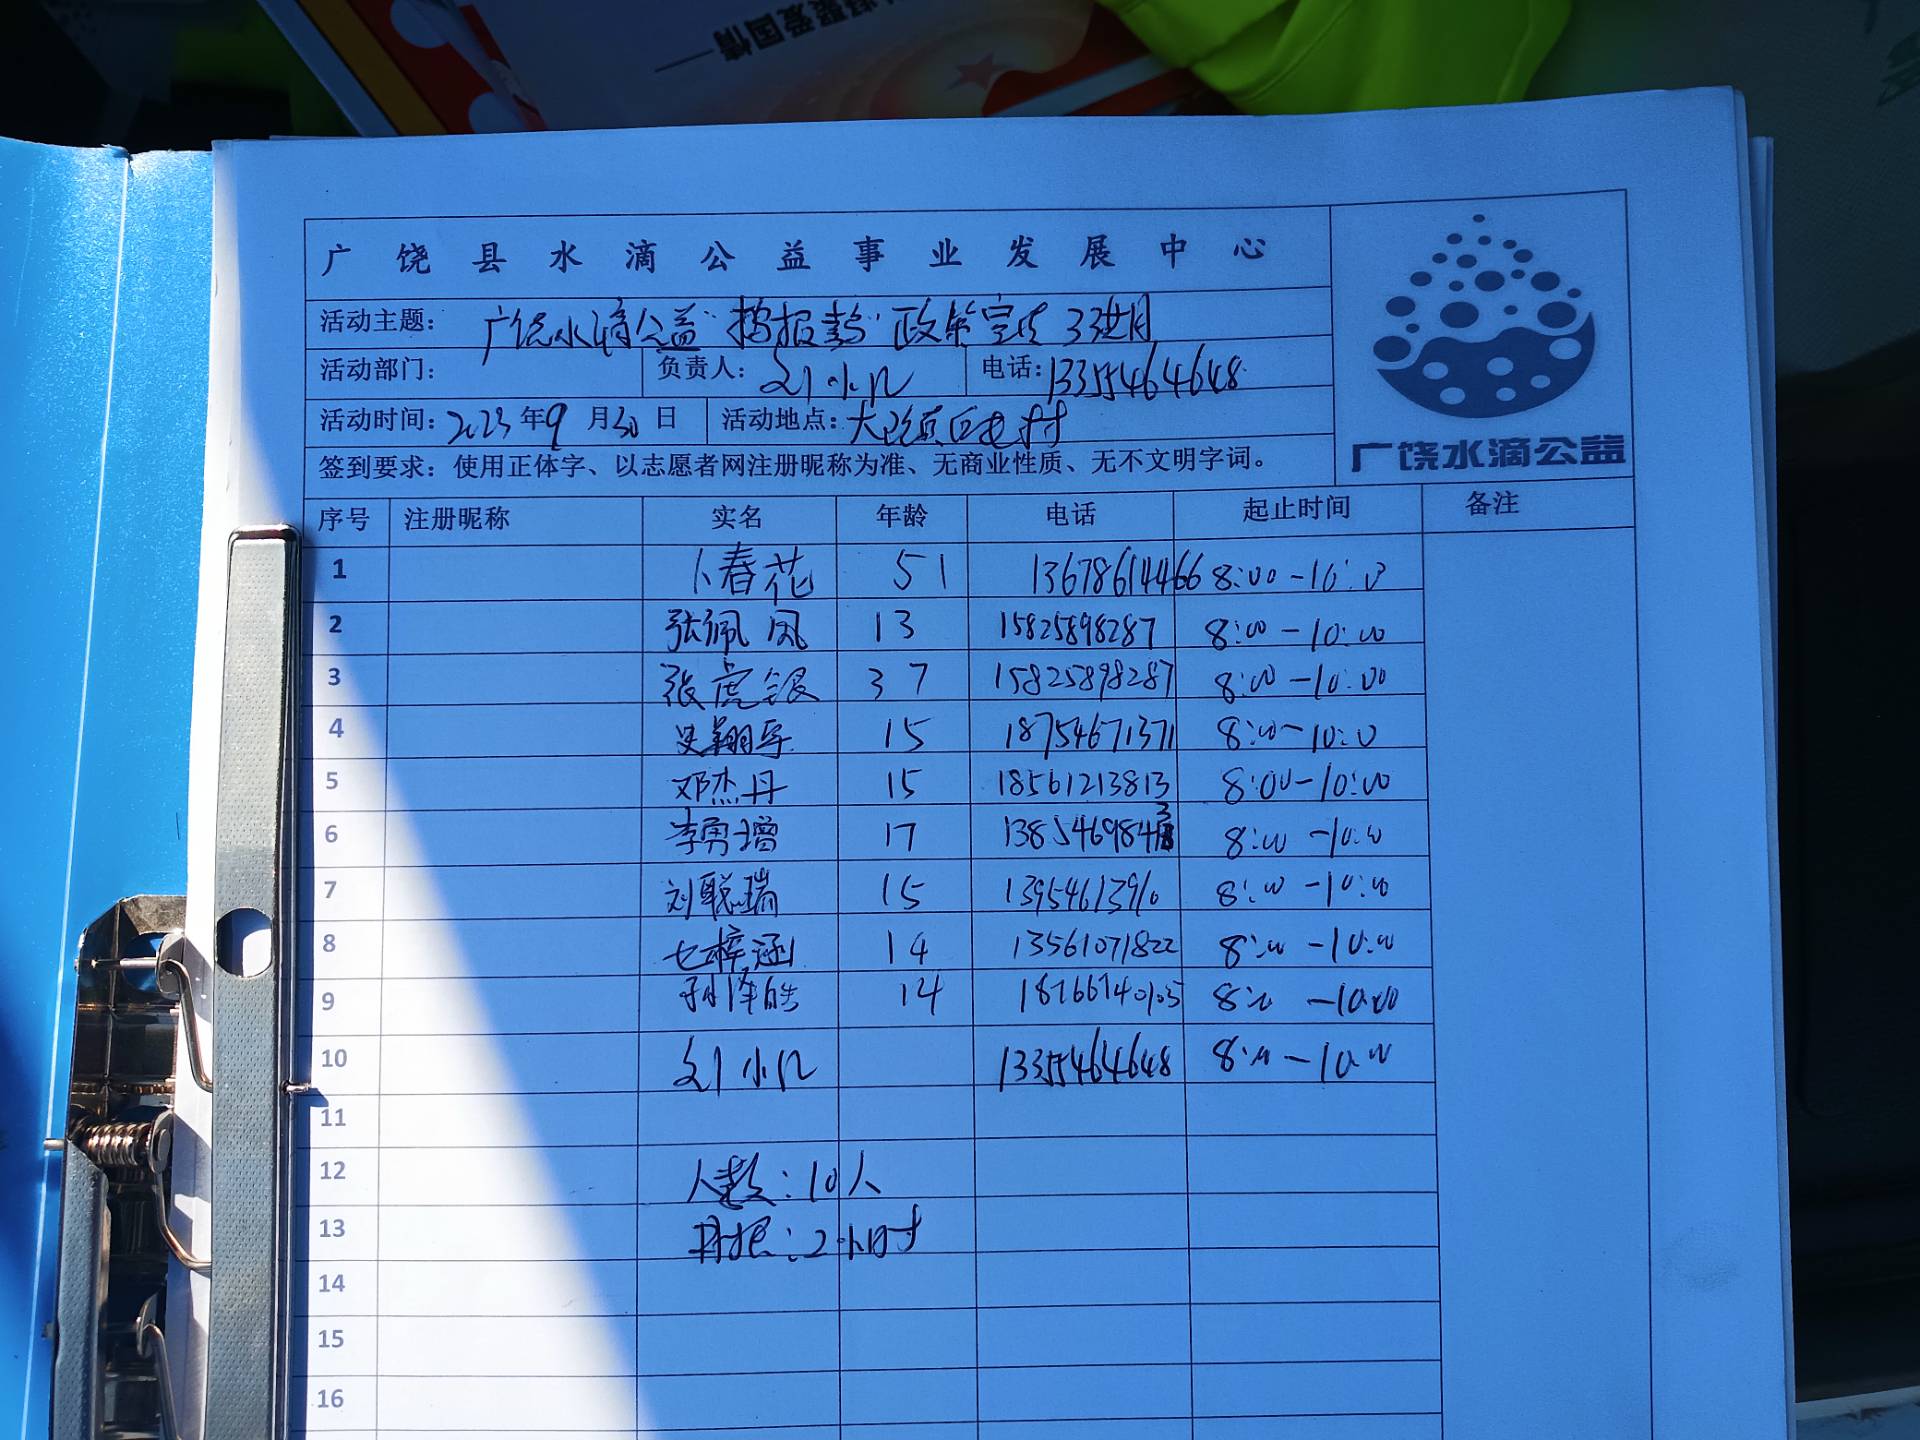 凝聚爱国情
广饶县水滴公益事业发展中心
活动主题: 广饶水滴公益" 政策宣传 33
活动部门: 负责人: 刘小几 电话: 13355464648
活动时间: 2023年9月30日 活动地点: 大 村
签到要求: 使用正体字、以志愿者网注册昵称为准、无商业性质、无不文明字词。
广饶水滴公益
序号 注册昵称 实名 年龄 电话 起止时间 备注
1 卜春花 51 13678614466 8:00-10:0
2 张佩凤 13 15825898287 8:00-10:00
3 张虎银 37 15825898287 8:00-10:00
4 史翔宇 15 18754671371 8:00-10:0
5 邓杰丹 15 18561213813 8:00-10:00
6 李勇增 17 8:00-10:00
7 刘聪瑞 15 13954613910 8:00-10:00
8 七梓涵 14 13561071822 8:00-10:00
9 孙泽皓 14 18266740105 8:00-10:00
10 刘小几 13355464648 8:00-10:00
11
12 人数:10人
13 时长:2小时
14
15
16